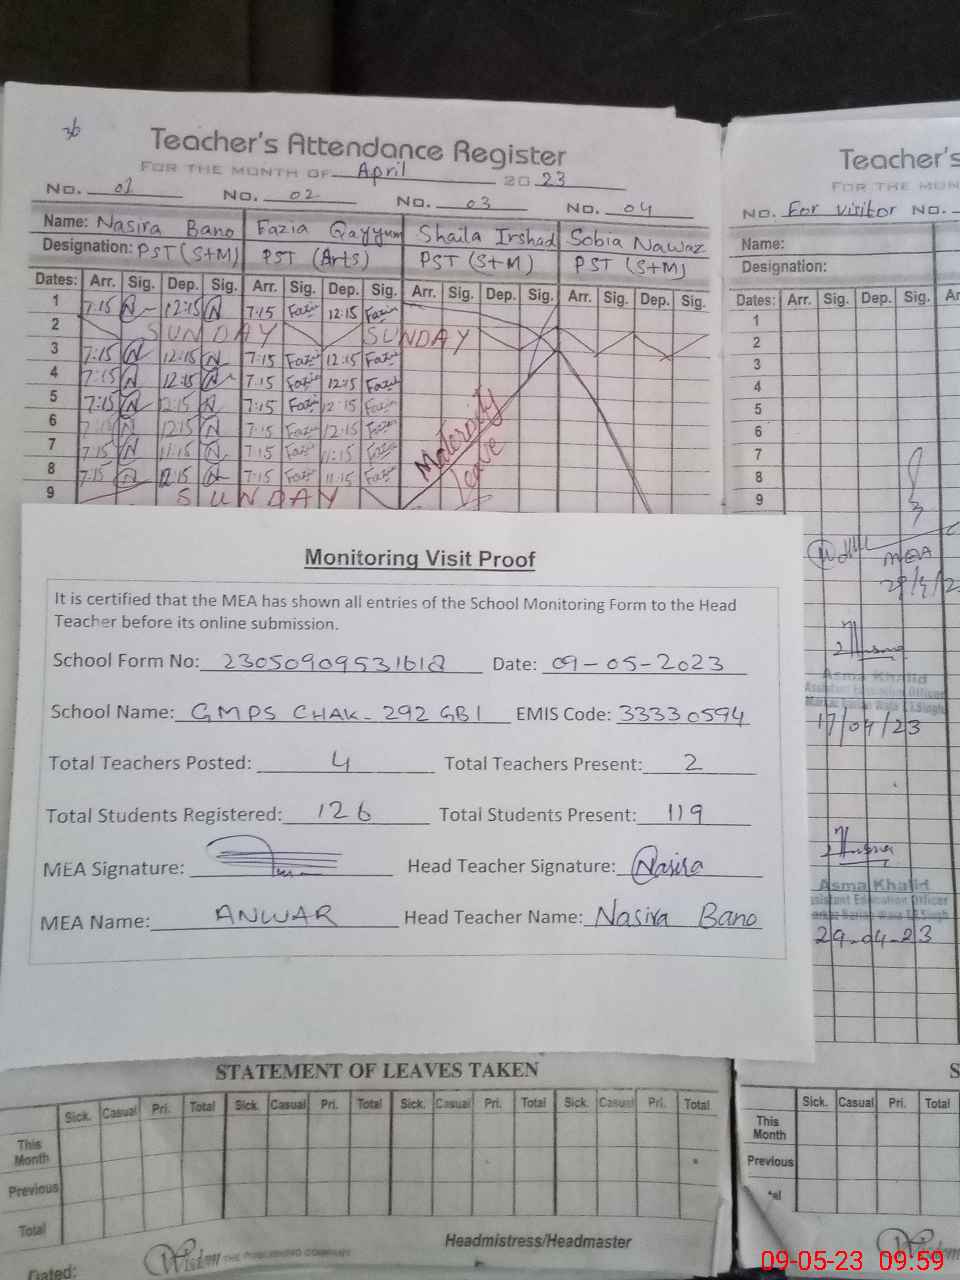 36
Teacher's Attendance Register
FOR THE MONTH OF April 2023
No. 01 No. 02 No. 03 No. 04
Name: Nasira Bano Fazia Qayyum Shaila Irshad Sobia Nawaz
Designation: PST (S+M) PST (Arts) PST (S+M) PST (S+M)
Dates: Arr. Sig. Dep. Sig. Arr. Sig. Dep. Sig. Arr. Sig. Dep. Sig. Arr. Sig. Dep. Sig.
1 7:15 N 12:15 N 7:15 Fazia 12:15 Fazia
2 SUNDAY SUNDAY
3 7:15 N 12:15 N 7:15 Fazia 12:15 Fazia
4 7:15 N 12:15 N 7:15 Fazia 12:15 Fazia
5 7:15 N 12:15 N 7:15 Fazia 12:15 Fazia
6 7:15 N 12:15 N 7:15 Fazia 12:15 Fazia
7 7:15 N 11:15 N 7:15 Fazia 11:15 Fazia
8 7:15 N 12:15 N 7:15 Fazia 11:15 Fazia
9 SUNDAY
Maternity
Leave
Monitoring Visit Proof
It is certified that the MEA has shown all entries of the School Monitoring Form to the Head
Teacher before its online submission.
School Form No: Date: 09-05-2023
School Name: GMPS CHAK-292 GB I EMIS Code: 33330594
Total Teachers Posted: 4 Total Teachers Present: 2
Total Students Registered: 126 Total Students Present: 119
MEA Signature: Head Teacher Signature: Nasira
MEA Name: ANWAR Head Teacher Name: Nasira Bano
STATEMENT OF LEAVES TAKEN
Sick. Casual Pri. Total Sick. Casual Pri. Total Sick. Casual Pri. Total Sick. Casual Pri. Total
This
Month
Previous
Total
Wisdom THE PUBLISHING COMPANY
Headmistress/Headmaster
Dated:
Teacher's
FOR THE MON
No. For visitor No.
Name:
Designation:
Dates: Arr. Sig. Dep. Sig. Ar
1
2
3
4
5
6
7
8
9
MEA
Asma Khalid
Assistant Education Officer
17/04/23
Asma Khalid
Assistant Education Officer
29-04-23
S
Sick. Casual Pri. Total
This
Month
Previous
Wisdom
09-05-23 09:59